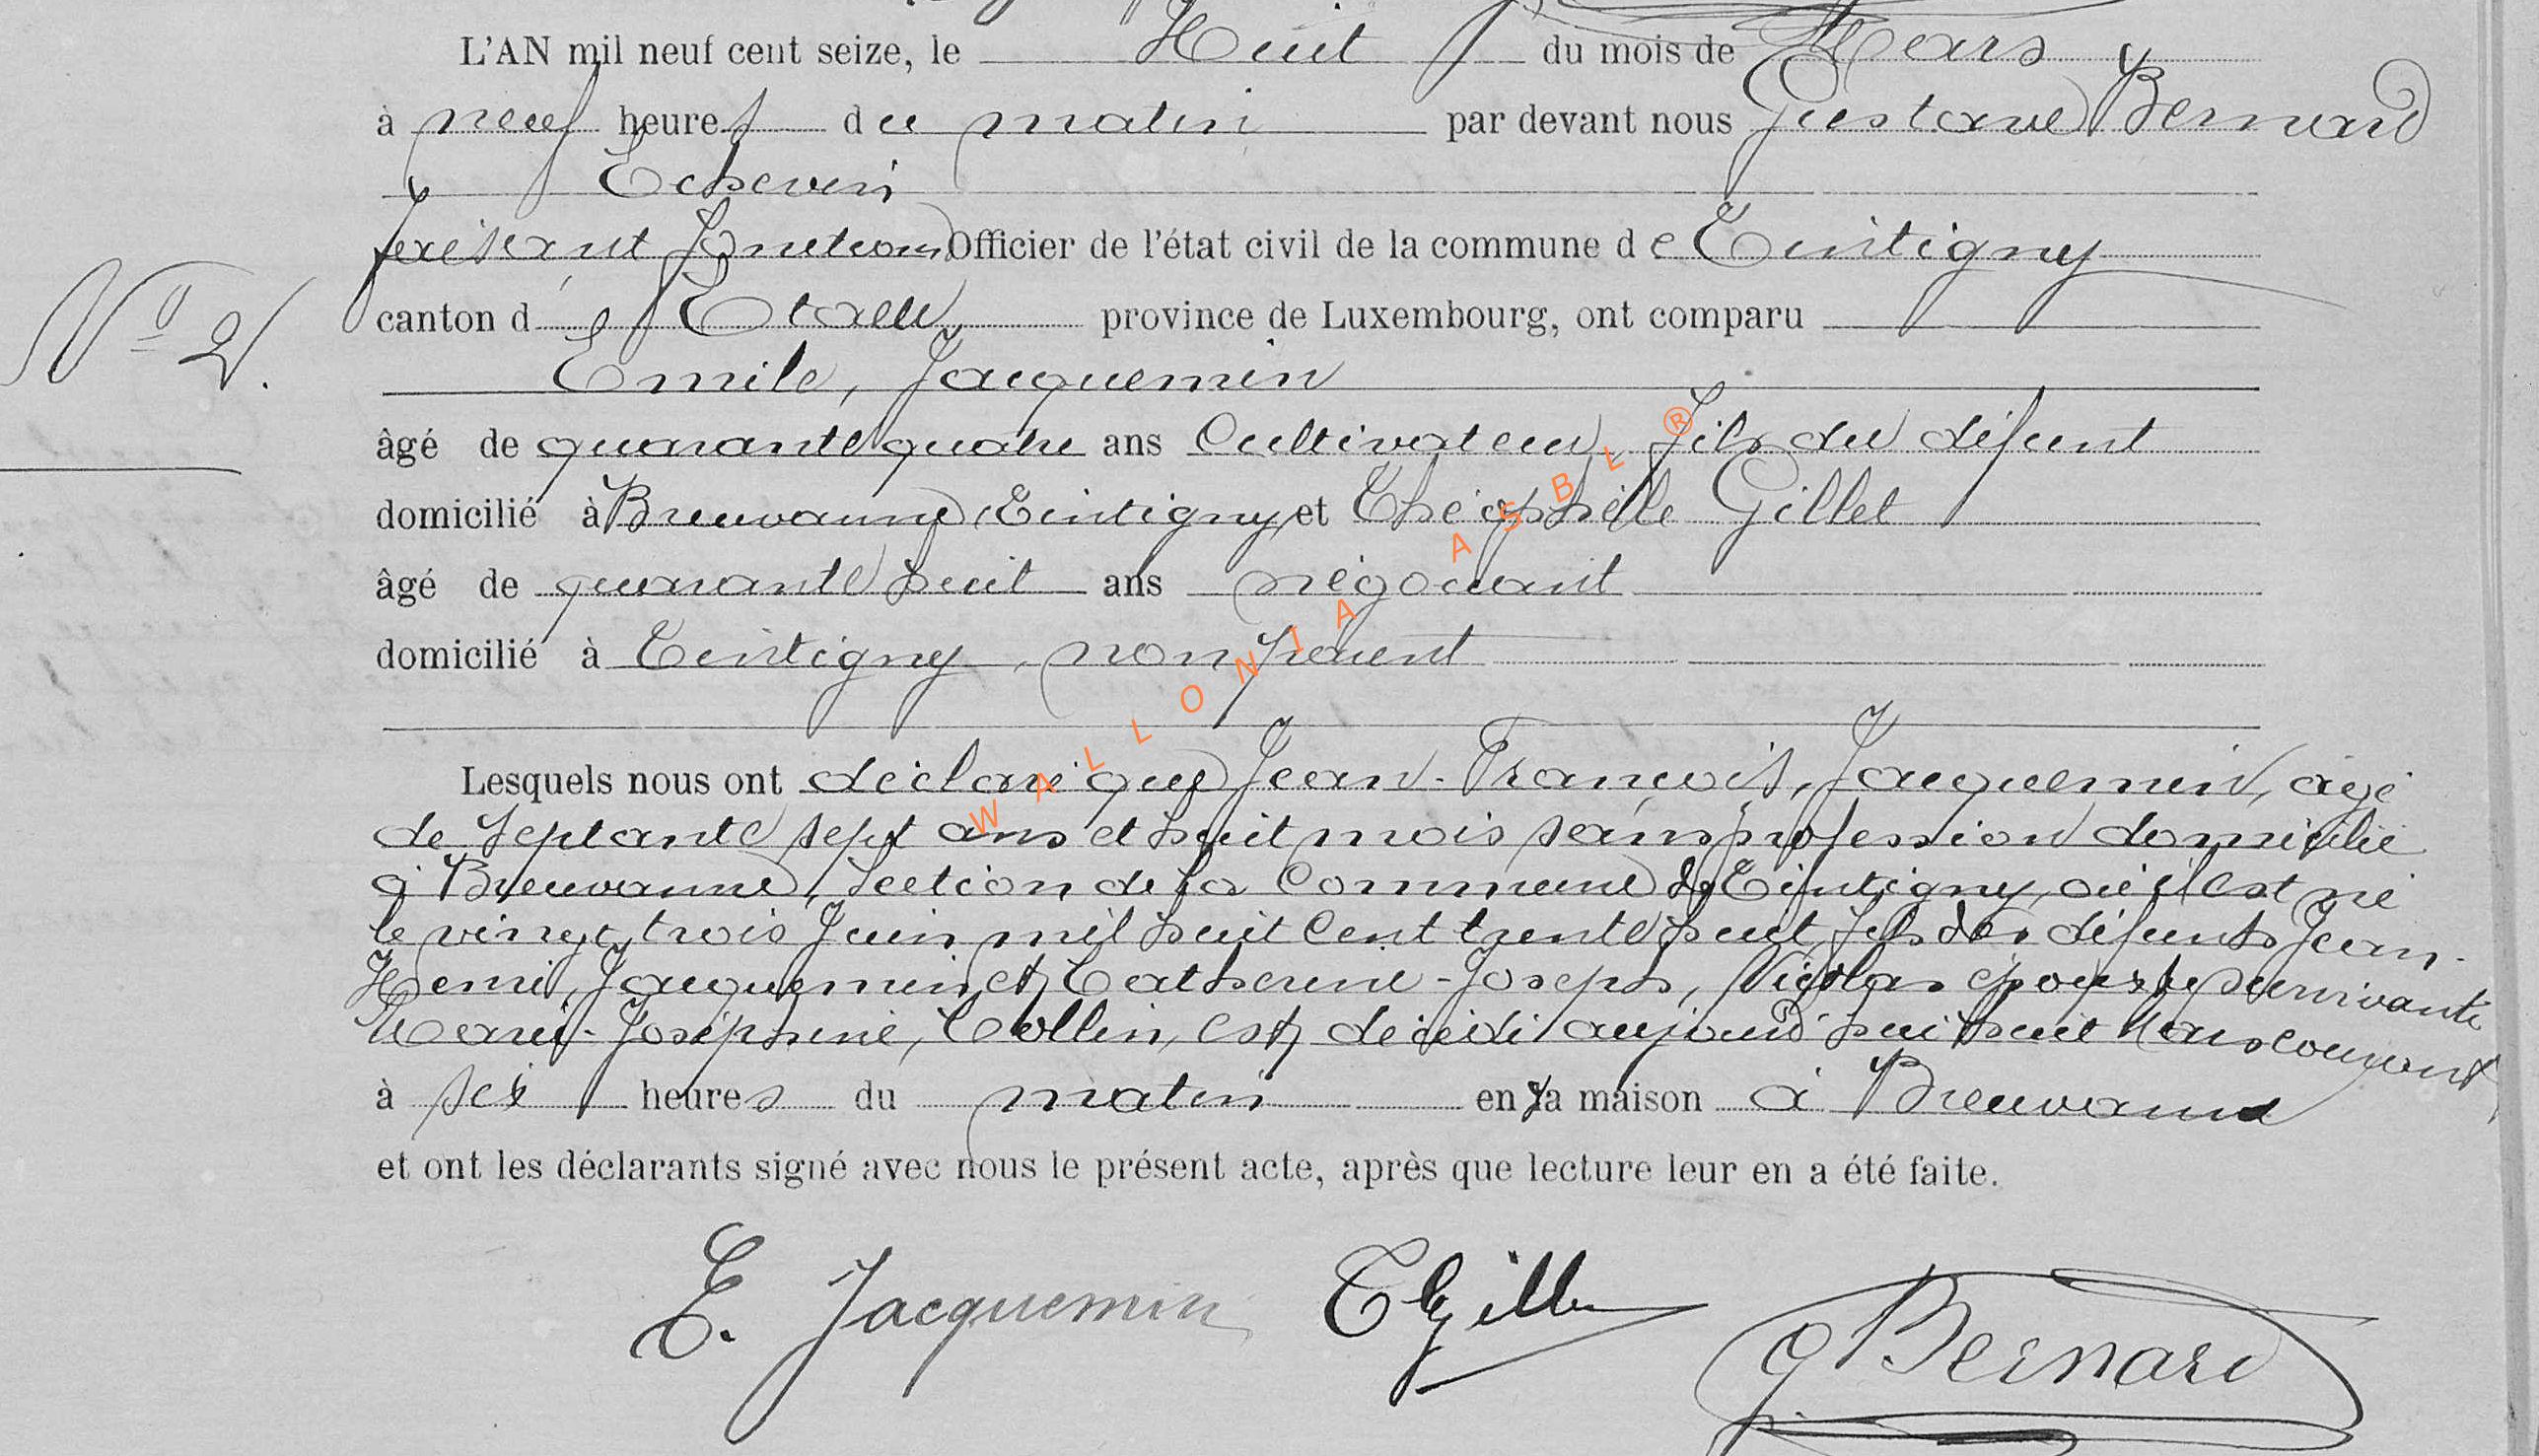 L'AN mil neuf cent seize, le Huit du mois de Mars
à neuf heures du matin par devant nous Gustave Bernard
Echevin
faisant fonctions Officier de l'état civil de la commune de Tintigny
N° 2.
canton d'Etalle province de Luxembourg, ont comparu
Emile, Jacquemin
âgé de quarante quatre ans Cultivateur, fils du défunt
domicilié à Breuvanne, Tintigny et Théophile Gillet
âgé de quarante huit ans négociant
domicilié à Tintigny, non parent
Lesquels nous ont déclaré que Jean-François, Jacquemin, âgé
de septante sept ans et huit mois sans profession domicilié
à Breuvanne, Section de la Commune de Tintigny, où il est né
le vingt trois Juin mil huit cent trente huit, fils des défunts Jean-
Henri, Jacquemin et Catherine-Joseph, Nicolas époux de survivante
Marie-Joséphine, Collin, est décédé aujourd'hui huit Mars courant
à six heures du matin en sa maison à Breuvanne
et ont les déclarants signé avec nous le présent acte, après que lecture leur en a été faite.
E. Jacquemin TGillet
G Bernard
WALLONIA ASBL ®